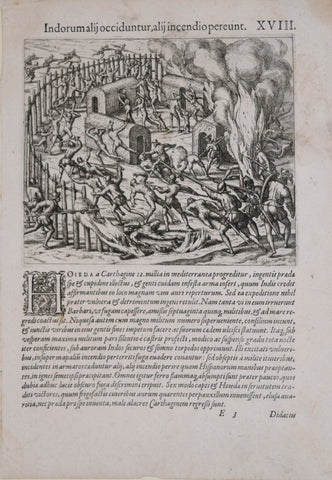 Indorum alij occiduntur, alij incendio pereunt. XVIII.
HOIEDA a Carthagine 12. millia in mediterranea progreditur, ingentis præda
spe & cupidine illectus, & genti cuidam infesta arma infert, quum Indis credit
affirmantibus eo loci magnam vim auri reperturum. Sed ea expeditione nihil
præter vulnera & detrimentum ingens retulit. Nam tanta vi in eum irruerunt
Barbari, ut fugam capessere, amissis septuaginta quinq, militibus, & ad mare re-
gredi coactus sit. Niquesa autem cum magno militum numero superveniente, consilium ineunt,
& iunctis viribus in eius gentis fines impetum facere ac suorum cædem ulcisci statuunt. Itaq, sub
vesperam maxima militum parte silentio e castris profectis, modico ac suspenso gradu tota nocte
iter conficientes, sub auroram Indos securos & somno torpidos opprimunt. Illi excitati vulneri-
bus, insuper mapalium incendio perterriti fuga evadere conantur: sed obseptis à milite itineribus,
incidentes in armatos cædebantur alij, alij incendio perire quam Hispanorum manibus præoptan-
tes, in ignes semetipsi præcipitant. Omnes igitur ferro flammaq, absumpti sunt præter paucos, quos
dubia adhuc lucis obscuro fuga discrimini eripuit. Sex modo capti & Hoieda in servitutem tradi-
ti victores, quum frigefactis cineribus aurum quærentes perpauxillum invenissent, elusa ava-
ritia, nec præda pro spe inventa, male alacres Carthaginem regressi sunt.
E 3 Didacus